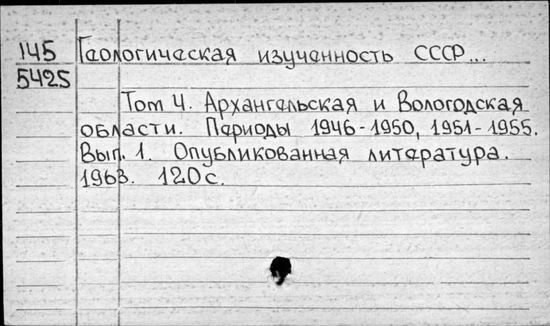 145 Геологическая изученность СССР...
5425
Том 4. Архангельская и Вологодская
области. Периоды 1946-1950, 1951-1955.
Вып. 1. Опубликованная литература.
1963. 120 с.